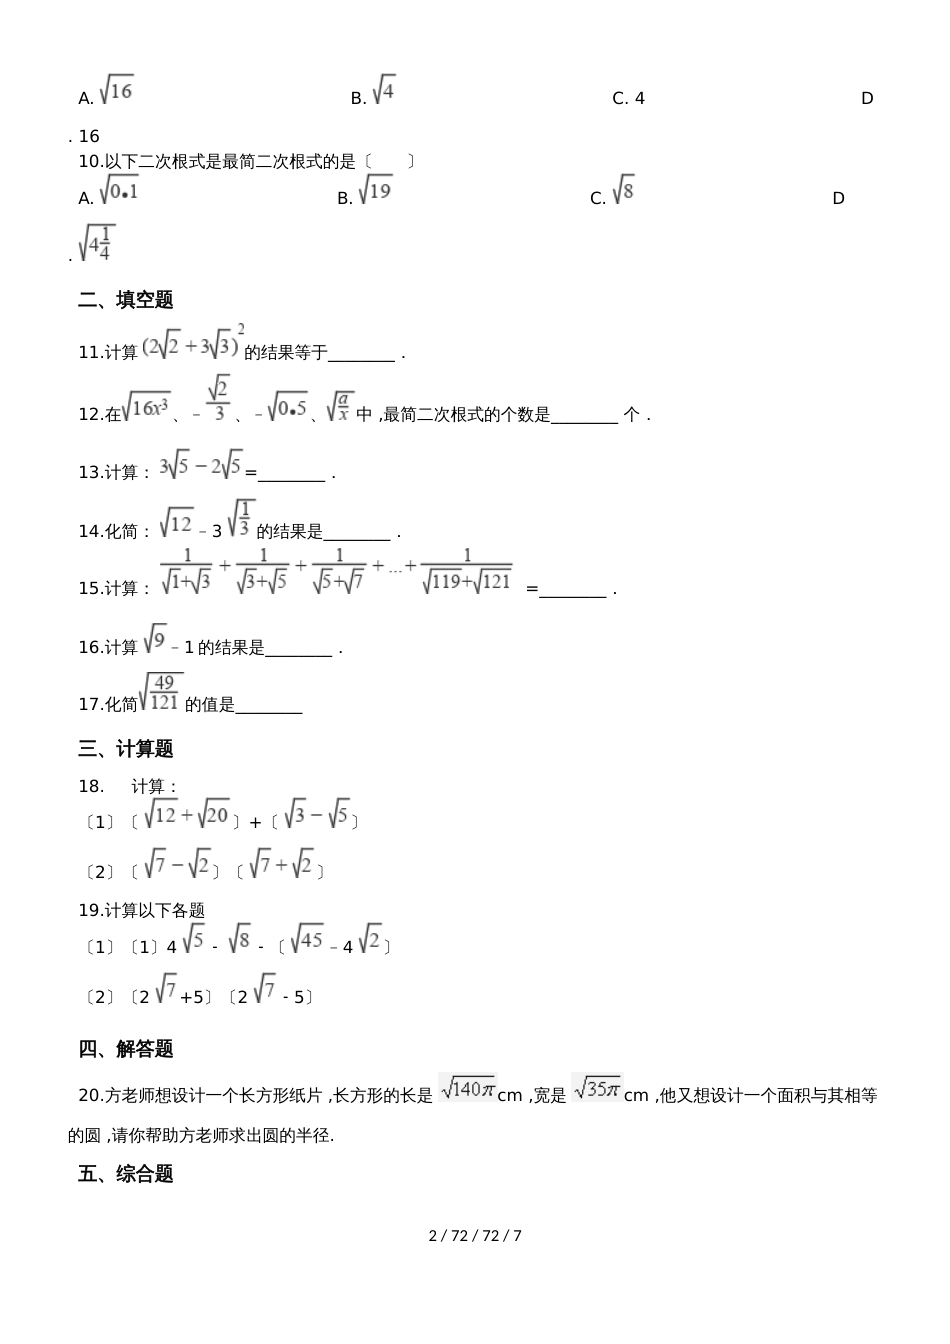 A. √16 B. √4 C. 4 D
. 16
10.以下二次根式是最简二次根式的是〔 〕
A. √0.1 B. √19 C. √8 D
. √(4 1/4)
二、填空题
11.计算 (2√2 + 3√3)² 的结果等于________ .
12.在√(16x³) 、﹣√2/3 、﹣√0.5 、√(a/x) 中 ,最简二次根式的个数是________ 个 .
13.计算： 3√5 − 2√5 =________ .
14.化简： √12 ﹣3 √(1/3) 的结果是________ .
15.计算： 1/(√1+√3) + 1/(√3+√5) + 1/(√5+√7) + ... + 1/(√119+√121) =________ .
16.计算 √9 ﹣1 的结果是________ .
17.化简√(49/121) 的值是________
三、计算题
18. 计算：
〔1〕〔 √12 + √20 〕+〔 √3 − √5 〕
〔2〕〔 √7 − √2 〕〔 √7 + √2 〕
19.计算以下各题
〔1〕〔1〕4 √5 - √8 - 〔 √45 ﹣4 √2 〕
〔2〕〔2 √7 +5〕〔2 √7 - 5〕
四、解答题
20.方老师想设计一个长方形纸片 ,长方形的长是 √(140π)cm ,宽是 √(35π)cm ,他又想设计一个面积与其相等
的圆 ,请你帮助方老师求出圆的半径.
五、综合题
2 / 72 / 72 / 7